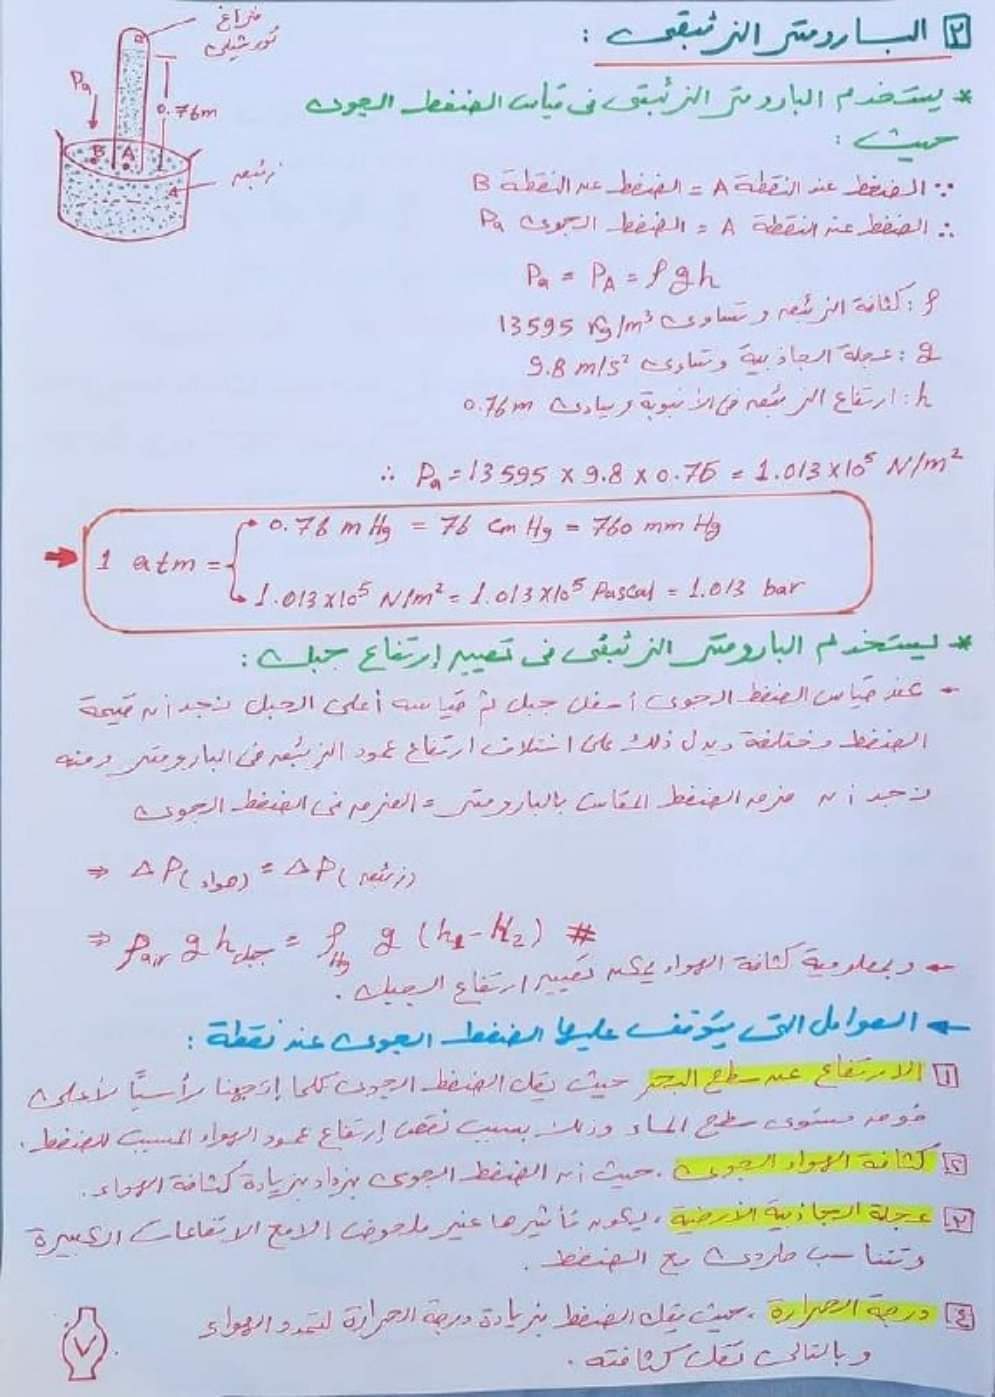 ٢ البارومتر الزئبقى :
فراغ
تورشيلى
Pa
0.76m
B A
زئبق
* يستخدم البارومتر الزئبقى فى قياس الضغط الجوى
حيث :
∵ الضغط عند النقطة A = الضغط عند النقطة B
∴ الضغط عند النقطة A = الضغط الجوى Pa
Pa = PA = ρgh
ρ : كثافة الزئبق وتساوى 13595 Kg/m³
g : عجلة الجاذبية وتساوى 9.8 m/s²
h : ارتفاع الزئبق فى الأنبوبة ويساوى 0.76m
∴ Pa = 13595 × 9.8 × 0.76 = 1.013×10⁵ N/m²
1 atm =
0.76 m Hg = 76 Cm Hg = 760 mm Hg
1.013×10⁵ N/m² = 1.013×10⁵ Pascal = 1.013 bar
* يستخدم البارومتر الزئبقى فى تعيين إرتفاع جبل :
- عند قياس الضغط الجوى أسفل جبل ثم قياسه أعلى الجبل نجد أن قيمة
الضغط مختلفة ويدل ذلك على اختلاف ارتفاع عمود الزئبق فى البارومتر ومنه
نجد أن فرق الضغط المقاس بالبارومتر = الفرق فى الضغط الجوى
⇒ ΔP(هواء) = ΔP(زئبق)
⇒ ρair g hجبل = ρHg g (h1 - h2) #
← وبمعلومية كثافة الهواء يمكن تعيين ارتفاع الجبل .
← العوامل التى يتوقف عليها الضغط الجوى عند نقطة :
١ الارتفاع عن سطح البحر حيث يقل الضغط الجوى كلما إتجهنا رأسيًّا لأعلى
فوق مستوى سطح الماء وذلك بسبب نقص إرتفاع عمود الهواء المسبب للضغط .
٢ كثافة الهواء الجوى . حيث أن الضغط الجوى يزداد بزيادة كثافة الهواء .
٣ عجلة الجاذبية الأرضية ، يكون تأثيرها غير ملحوظ إلا مع الارتفاعات الكبيرة
وتتناسب طردى مع الضغط .
٤ درجة الحرارة ، حيث يقل الضغط بزيادة درجة الحرارة لتمدد الهواء
وبالتالى تقل كثافته .
٧